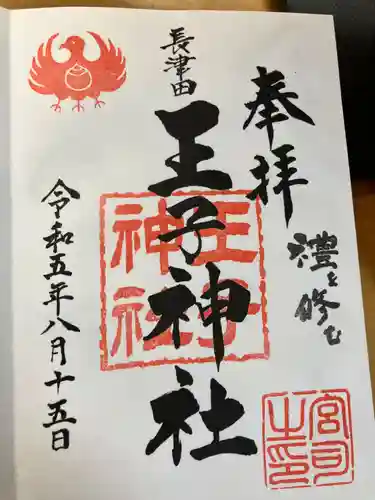 奉拝
禮を修む
長津田
王子神社
王子
神社
宮司
之印
令和五年八月十五日